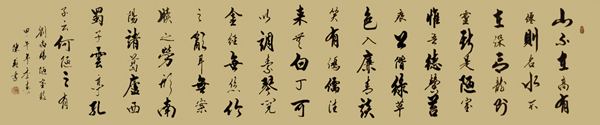 山不在高有
僊則名水不
在深有龍則
靈斯是陋室
惟吾德馨苔
痕上階綠草
色入簾青談
笑有鴻儒往
来無白丁可
以調素琴閱
金經無絲竹
之亂耳無案
牘之勞形南
陽諸葛廬西
蜀子雲亭孔
子云何陋之有
劉禹錫陋室銘
甲午年